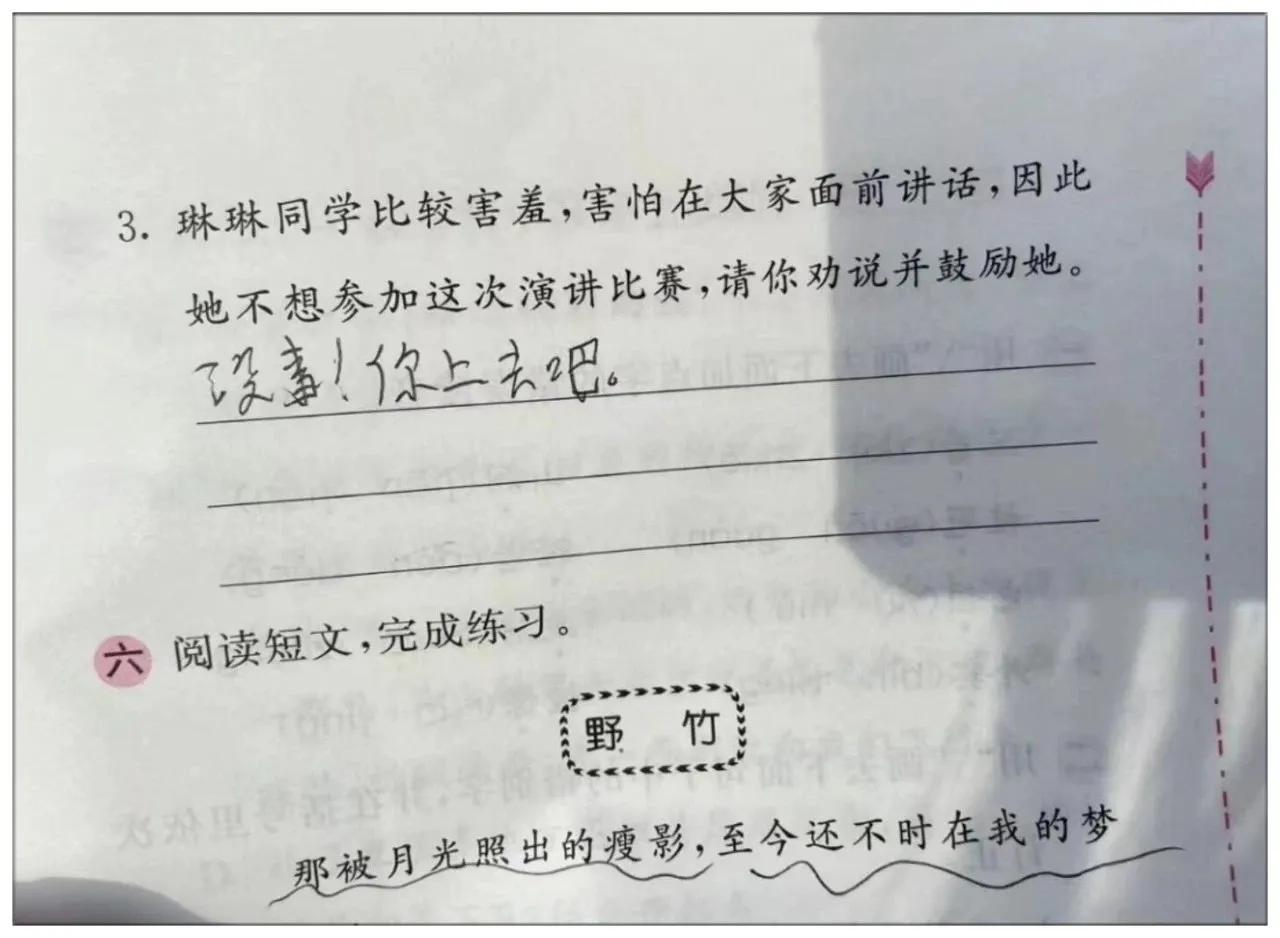 3. 琳琳同学比较害羞,害怕在大家面前讲话,因此
她不想参加这次演讲比赛,请你劝说并鼓励她。
没毒!你上去吧。
六 阅读短文,完成练习。
野 竹
那被月光照出的瘦影,至今还不时在我的梦